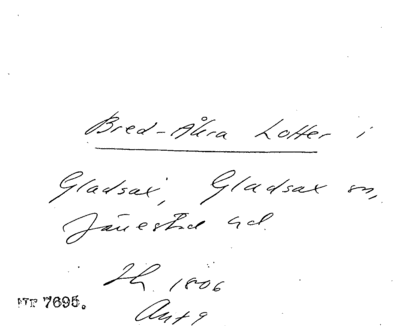 Bred-Åkra Lotter i
Gladsax, Gladsax sn,
Järrestad hd.
Lh 1806
Akt 9
NTP 7695.